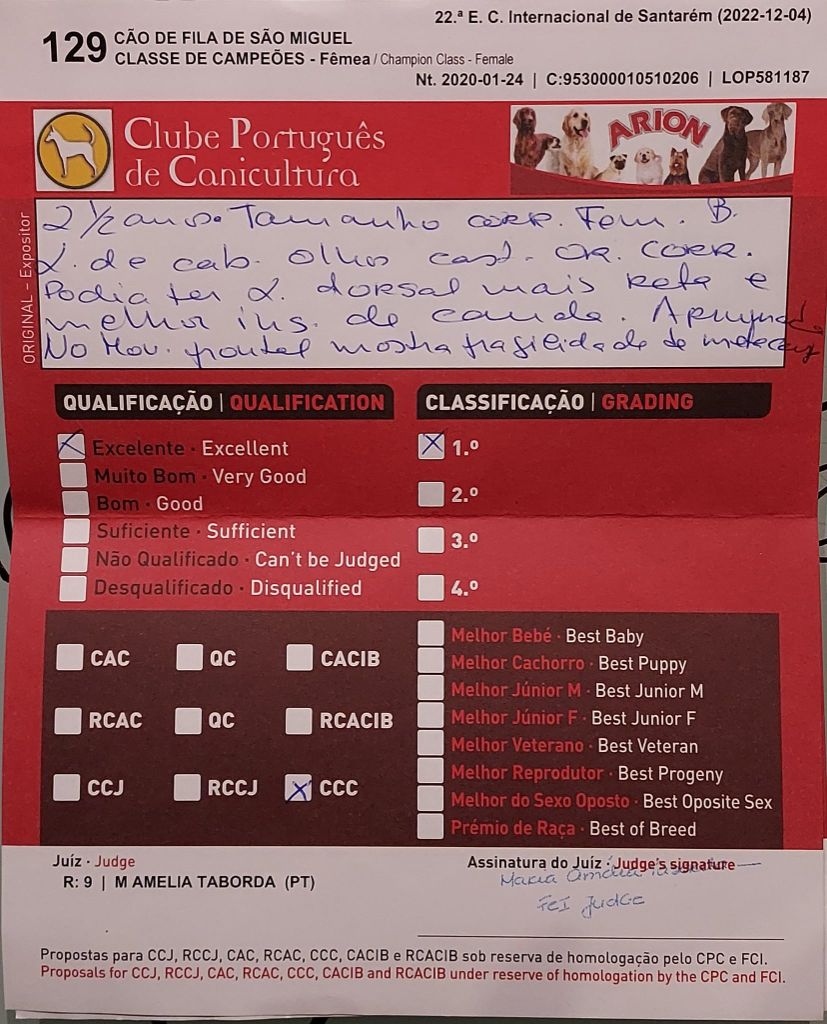 22.ª E. C. Internacional de Santarém (2022-12-04)
129 CÃO DE FILA DE SÃO MIGUEL
CLASSE DE CAMPEÕES - Fêmea / Champion Class - Female
Nt. 2020-01-24 | C:953000010510206 | LOP581187
Clube Português
de Canicultura
ARION
ORIGINAL – Expositor
2 ½ anos. Tamanho corr. Fem. B.
L. de cab. olho cast. OR. CORR.
Podia ter L. dorsal mais reta e
melhor ins. de cauda.
No Mov. frontal mostra fragilidade de
QUALIFICAÇÃO | QUALIFICATION
CLASSIFICAÇÃO | GRADING
Excelente · Excellent
Muito Bom · Very Good
Bom · Good
Suficiente · Sufficient
Não Qualificado · Can't be Judged
Desqualificado · Disqualified
1.º
2.º
3.º
4.º
CAC QC CACIB
RCAC QC RCACIB
CCJ RCCJ CCC
Melhor Bebé · Best Baby
Melhor Cachorro · Best Puppy
Melhor Júnior M · Best Junior M
Melhor Júnior F · Best Junior F
Melhor Veterano · Best Veteran
Melhor Reprodutor · Best Progeny
Melhor do Sexo Oposto · Best Oposite Sex
Prémio de Raça · Best of Breed
Juíz · Judge
R: 9 | M AMELIA TABORDA (PT)
Assinatura do Juíz · Judge's signature
Maria Amélia Taborda
FCI Judge
Propostas para CCJ, RCCJ, CAC, RCAC, CCC, CACIB e RCACIB sob reserva de homologação pelo CPC e FCI.
Proposals for CCJ, RCCJ, CAC, RCAC, CCC, CACIB and RCACIB under reserve of homologation by the CPC and FCI.